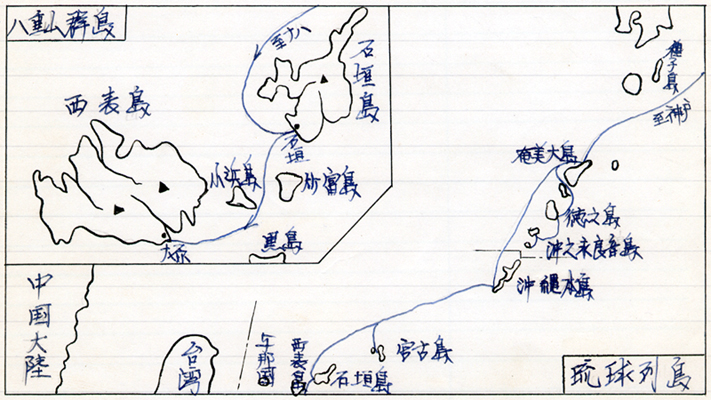 八重山群島
至ナハ
石垣島
西表島
石垣
小浜島
黒島
大原
種子島
至神戸
奄美大島
徳之島
沖之永良部島
沖縄本島
中国大陸
台湾
与那国
西表島
石垣島
宮古島
琉球列島